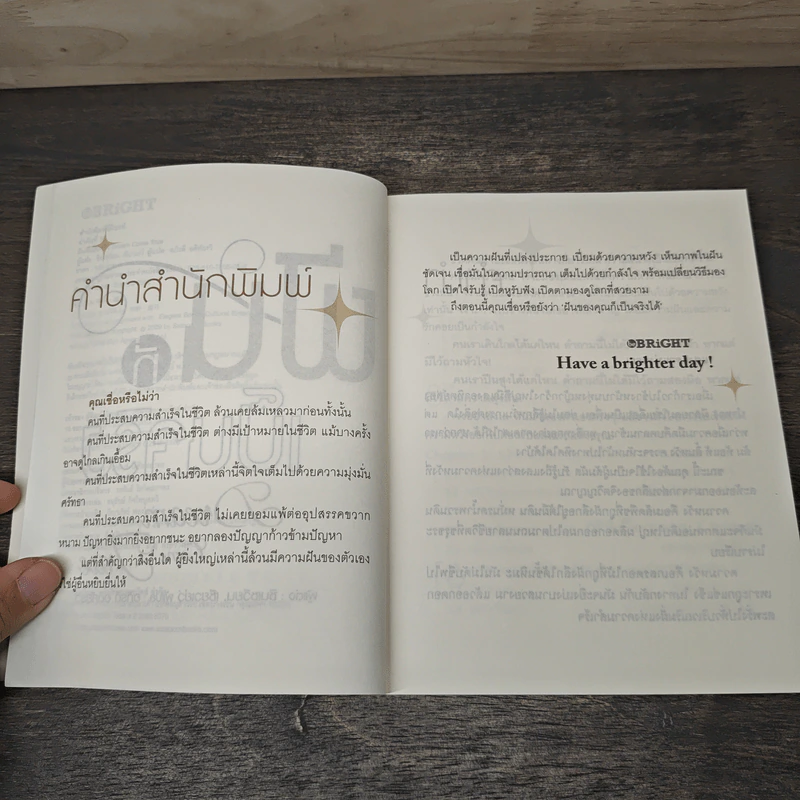 คำนำสำนักพิมพ์
คุณเชื่อหรือไม่ว่า
คนที่ประสบความสำเร็จในชีวิต ล้วนเคยล้มเหลวมาก่อนทั้งนั้น
คนที่ประสบความสำเร็จในชีวิต ต่างมีเป้าหมายในชีวิต แม้บางครั้ง
อาจดูไกลเกินเอื้อม
คนที่ประสบความสำเร็จในชีวิตเหล่านี้จิตใจเต็มไปด้วยความมุ่งมั่น
ศรัทธา
คนที่ประสบความสำเร็จในชีวิต ไม่เคยยอมแพ้ต่ออุปสรรคขวาก
หนาม ปัญหายิ่งมากยิ่งอยากชนะ อยากลองปัญญาก้าวข้ามปัญหา
แต่ที่สำคัญกว่าสิ่งอื่นใด ผู้ยิ่งใหญ่เหล่านี้ล้วนมีความฝันของตัวเอง
ใช่ผู้อื่นหยิบยื่นให้
เป็นความฝันที่เปล่งประกาย เปี่ยมด้วยความหวัง เห็นภาพในฝัน
ชัดเจน เชื่อมั่นในความปรารถนา เต็มไปด้วยกำลังใจ พร้อมเปลี่ยนวิธีมอง
โลก เปิดใจรับรู้ เปิดหูรับฟัง เปิดตามองดูโลกที่สวยงาม
ถึงตอนนี้คุณเชื่อหรือยังว่า 'ฝันของคุณก็เป็นจริงได้'
BRiGHT
Have a brighter day !